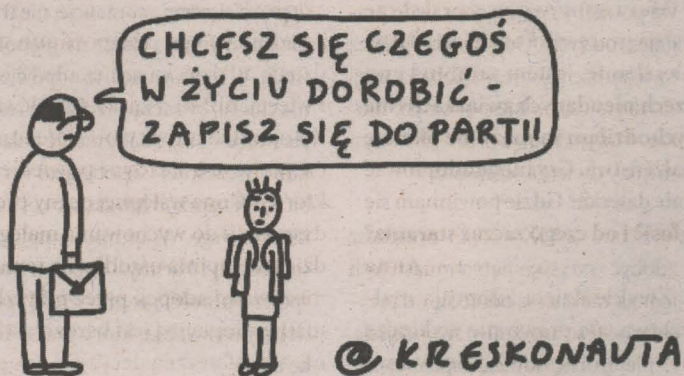 CHCESZ SIĘ CZEGOŚ
W ŻYCIU DOROBIĆ -
ZAPISZ SIĘ DO PARTII
@ KRESKONAUTA